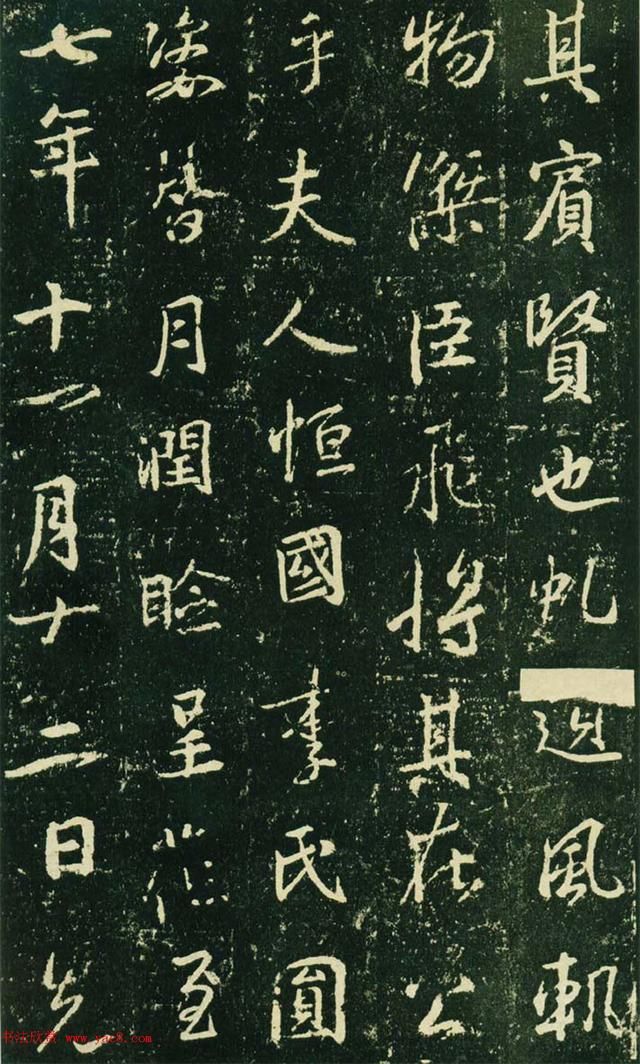 其賓賢也虬風軌
物傑臣飛將其在公
乎夫人恒國李氏圓
姿替月潤瞼呈花至
七年十一月十二日先
书法欣赏 www.yac8.com